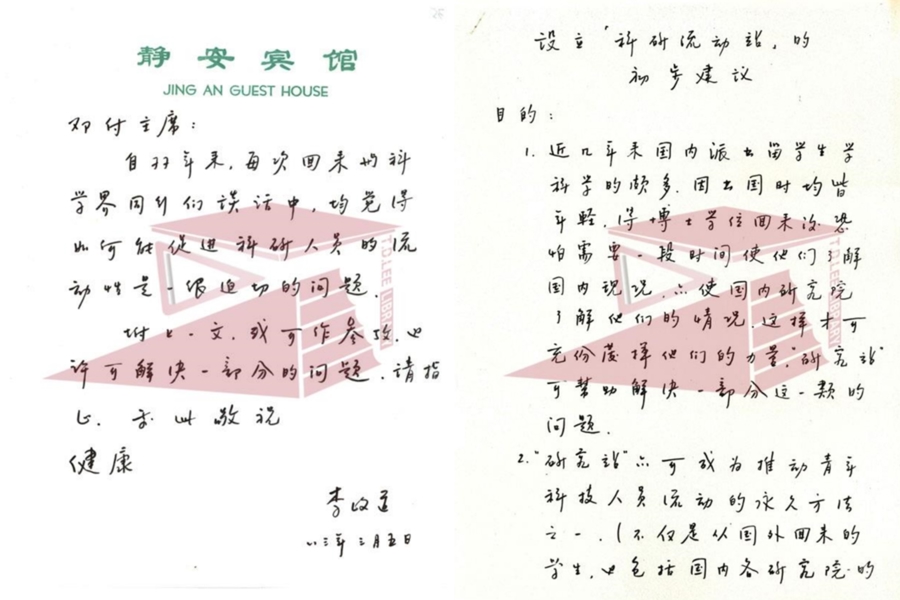 静安宾馆
JING AN GUEST HOUSE
邓付主席：
自77年来，每次回来州科
学界同行们谈话中，均觉得
如何能促进科研人员的流
动性是一很迫切的问题．
附上一文，或可作参考，也
许可解决一部分的问题．请指
正．专此敬祝
健康
李政道
八三年三月五日
设立'科研流动站'的
初步建议
目的：
1. 近几年来国内派出留学生学
科学的颇多．因出国时均皆
年轻，得博士学位回来后恐
怕需要一段时间使他们了解
国内现况，亦使国内研究院
了解他们的情况．这样才可
充份发挥他们的力量．"研究站"
可帮助解决一部分这一类的
问题．
2. "研究站"亦可成为推动青年
科技人员流动的永久方法
之一．(不仅是从国外回来的
学生，也包括国内各研究院的
T.D.LEE LIBRARY
T.D.LEE LIBRARY